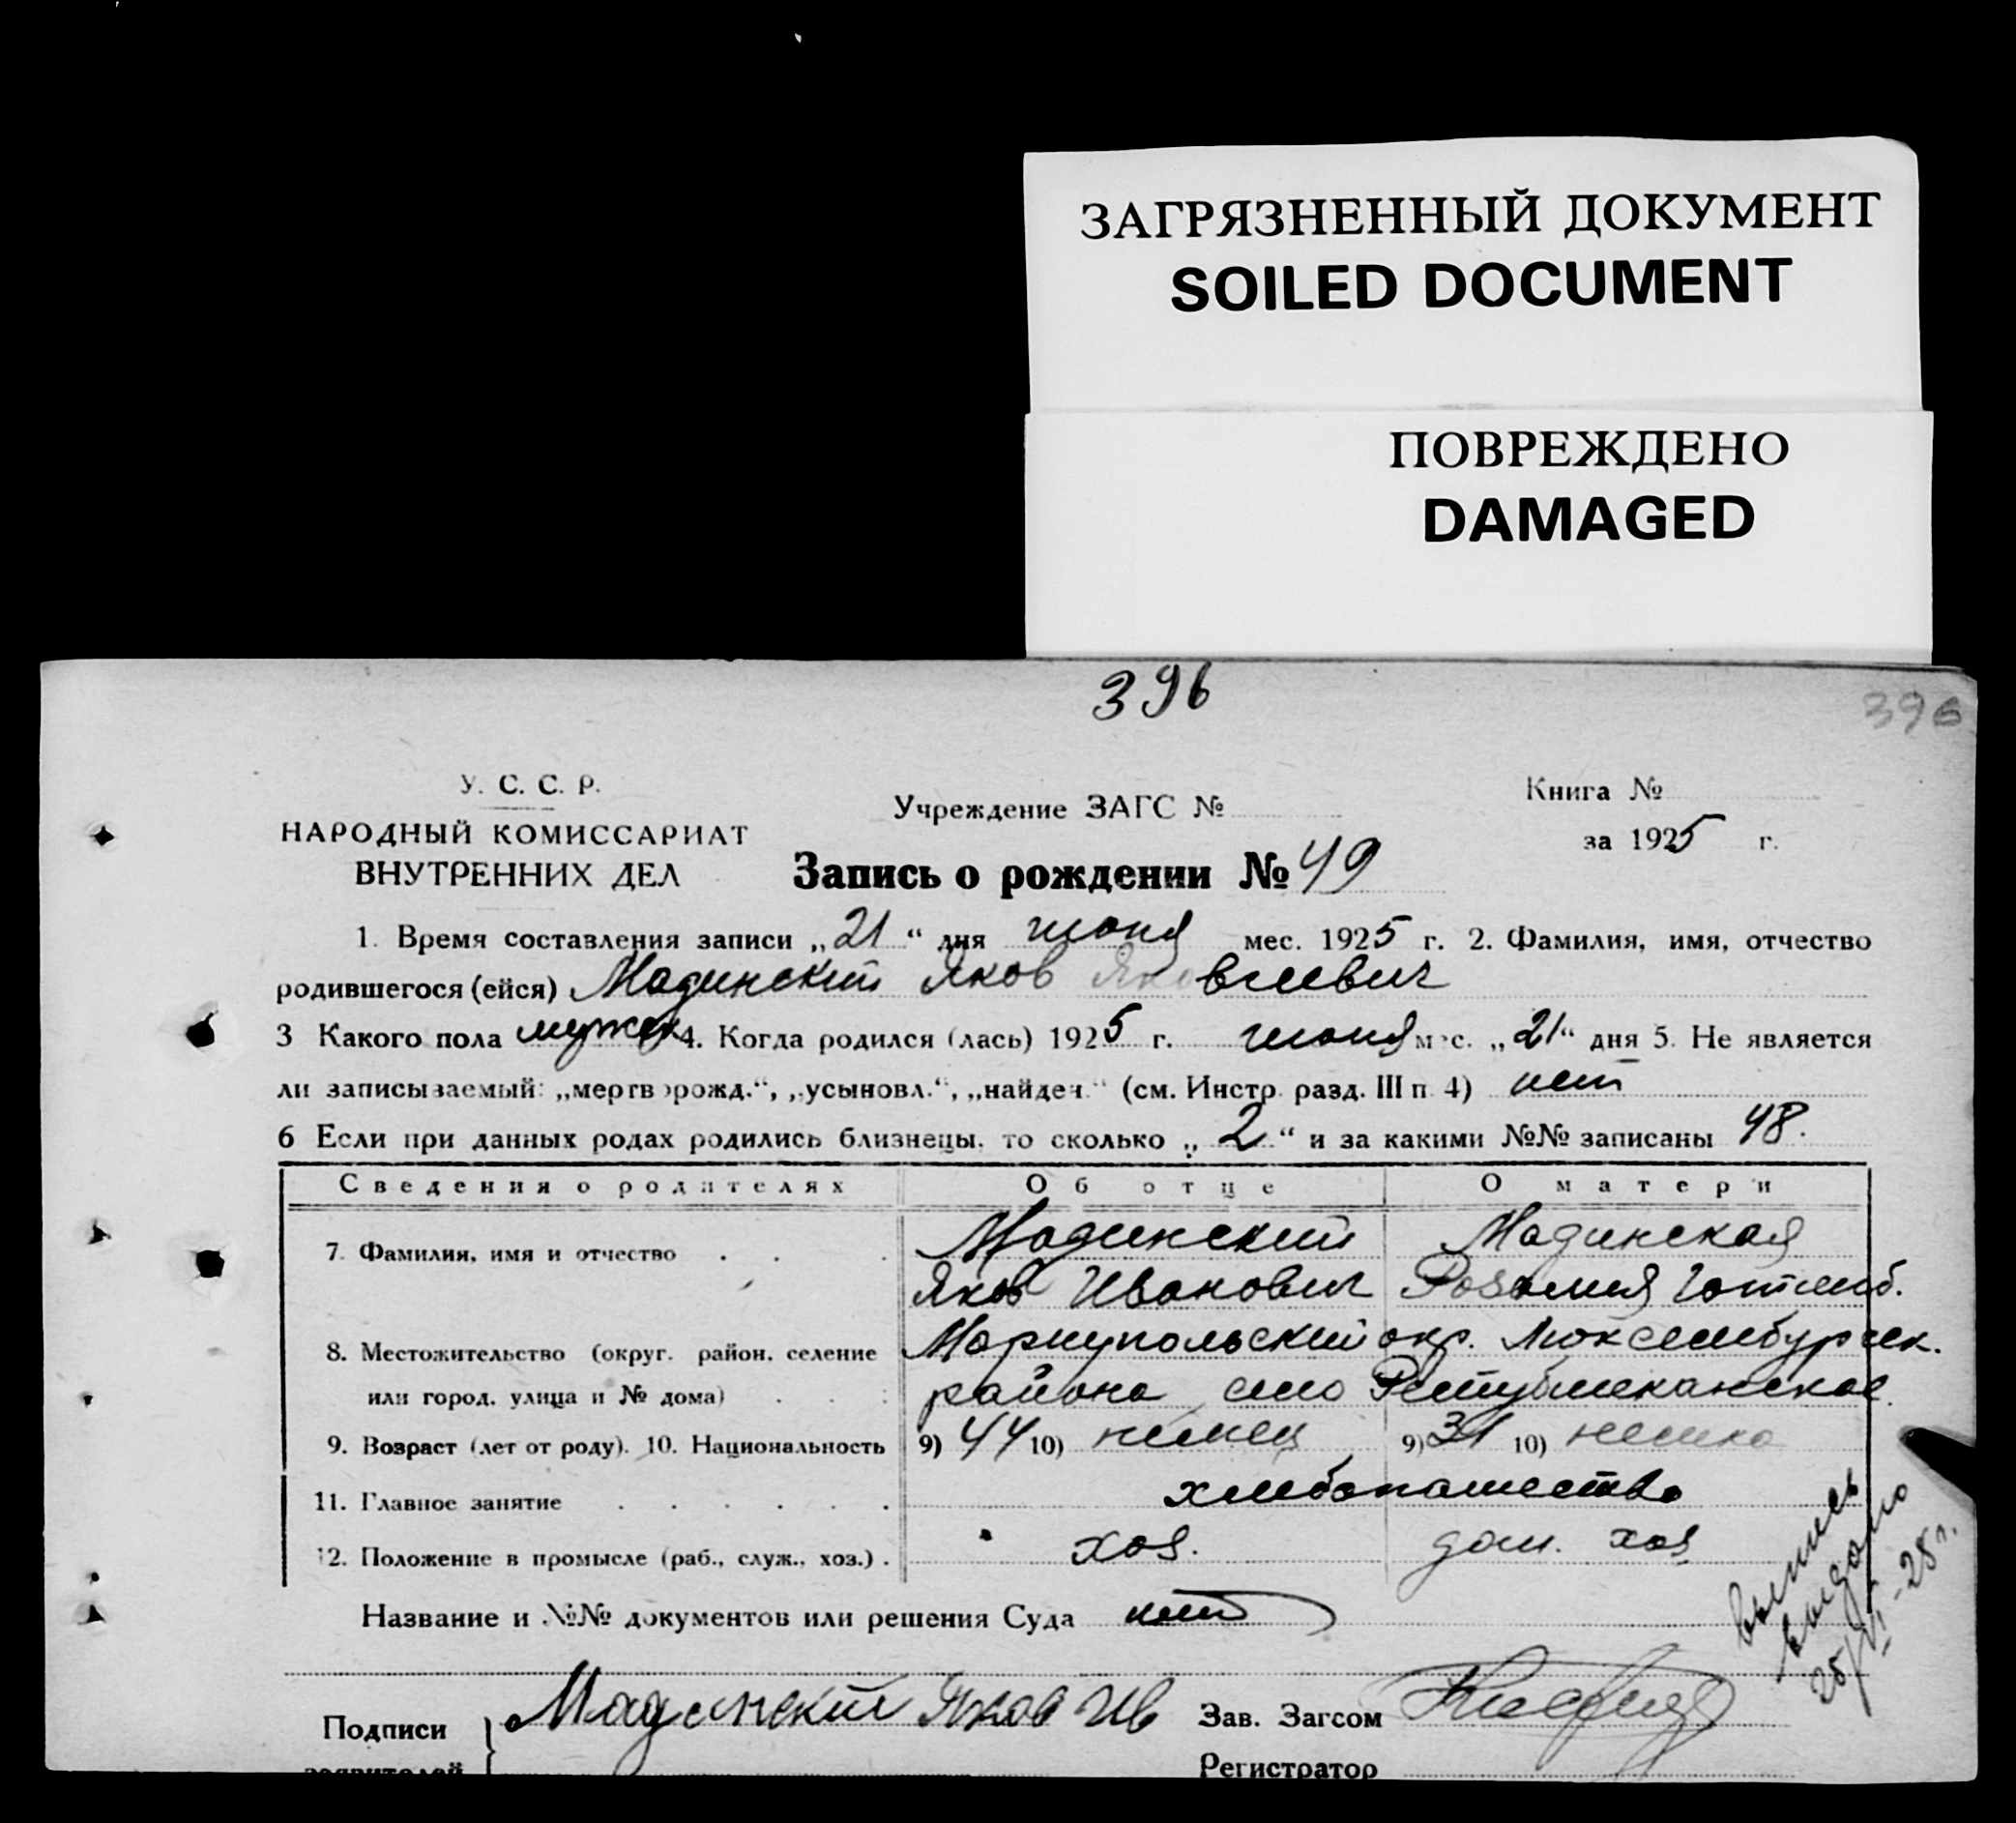 ЗАГРЯЗНЕННЫЙ ДОКУМЕНТ
SOILED DOCUMENT
ПОВРЕЖДЕНО
DAMAGED
396
396
У. С. С. Р.
НАРОДНЫЙ КОМИССАРИАТ
ВНУТРЕННИХ ДЕЛ
Учреждение ЗАГС №
Книга №
за 1925 г.
Запись о рождении № 49
1. Время составления записи „21“ дня июня мес. 1925 г. 2. Фамилия, имя, отчество
родившегося (ейся) Мадинский Яков Яковлевич
3 Какого пола мужск 4. Когда родился (лась) 1925 г. июня мес. „21“ дня 5. Не является
ли записываемый: „мертворожд.“, „усыновл.“, „найден.“ (см. Инстр. разд. III п. 4) нет
6 Если при данных родах родились близнецы, то сколько „2“ и за какими №№ записаны 48.
Сведения о родителях Об отце О матери
7. Фамилия, имя и отчество . . . Мадинский Мадинская
Яков Иванович Розалия Готлиб.
8. Местожительство (округ. район. селение Мариупольский окр. Люксембургск.
или город, улица и № дома) . . . района село Республиканское
9. Возраст (лет от роду). 10. Национальность 9) 44 10) немец 9) 31 10) немка
11. Главное занятие . . . . . . хлебопашество
12. Положение в промысле (раб., служ., хоз.) . хоз. дом. хоз
Название и №№ документов или решения Суда нет
выпись
выдано
25/VI-28 г.
Подписи Мадинский Яков Ив Зав. Загсом
заявителей Регистратор